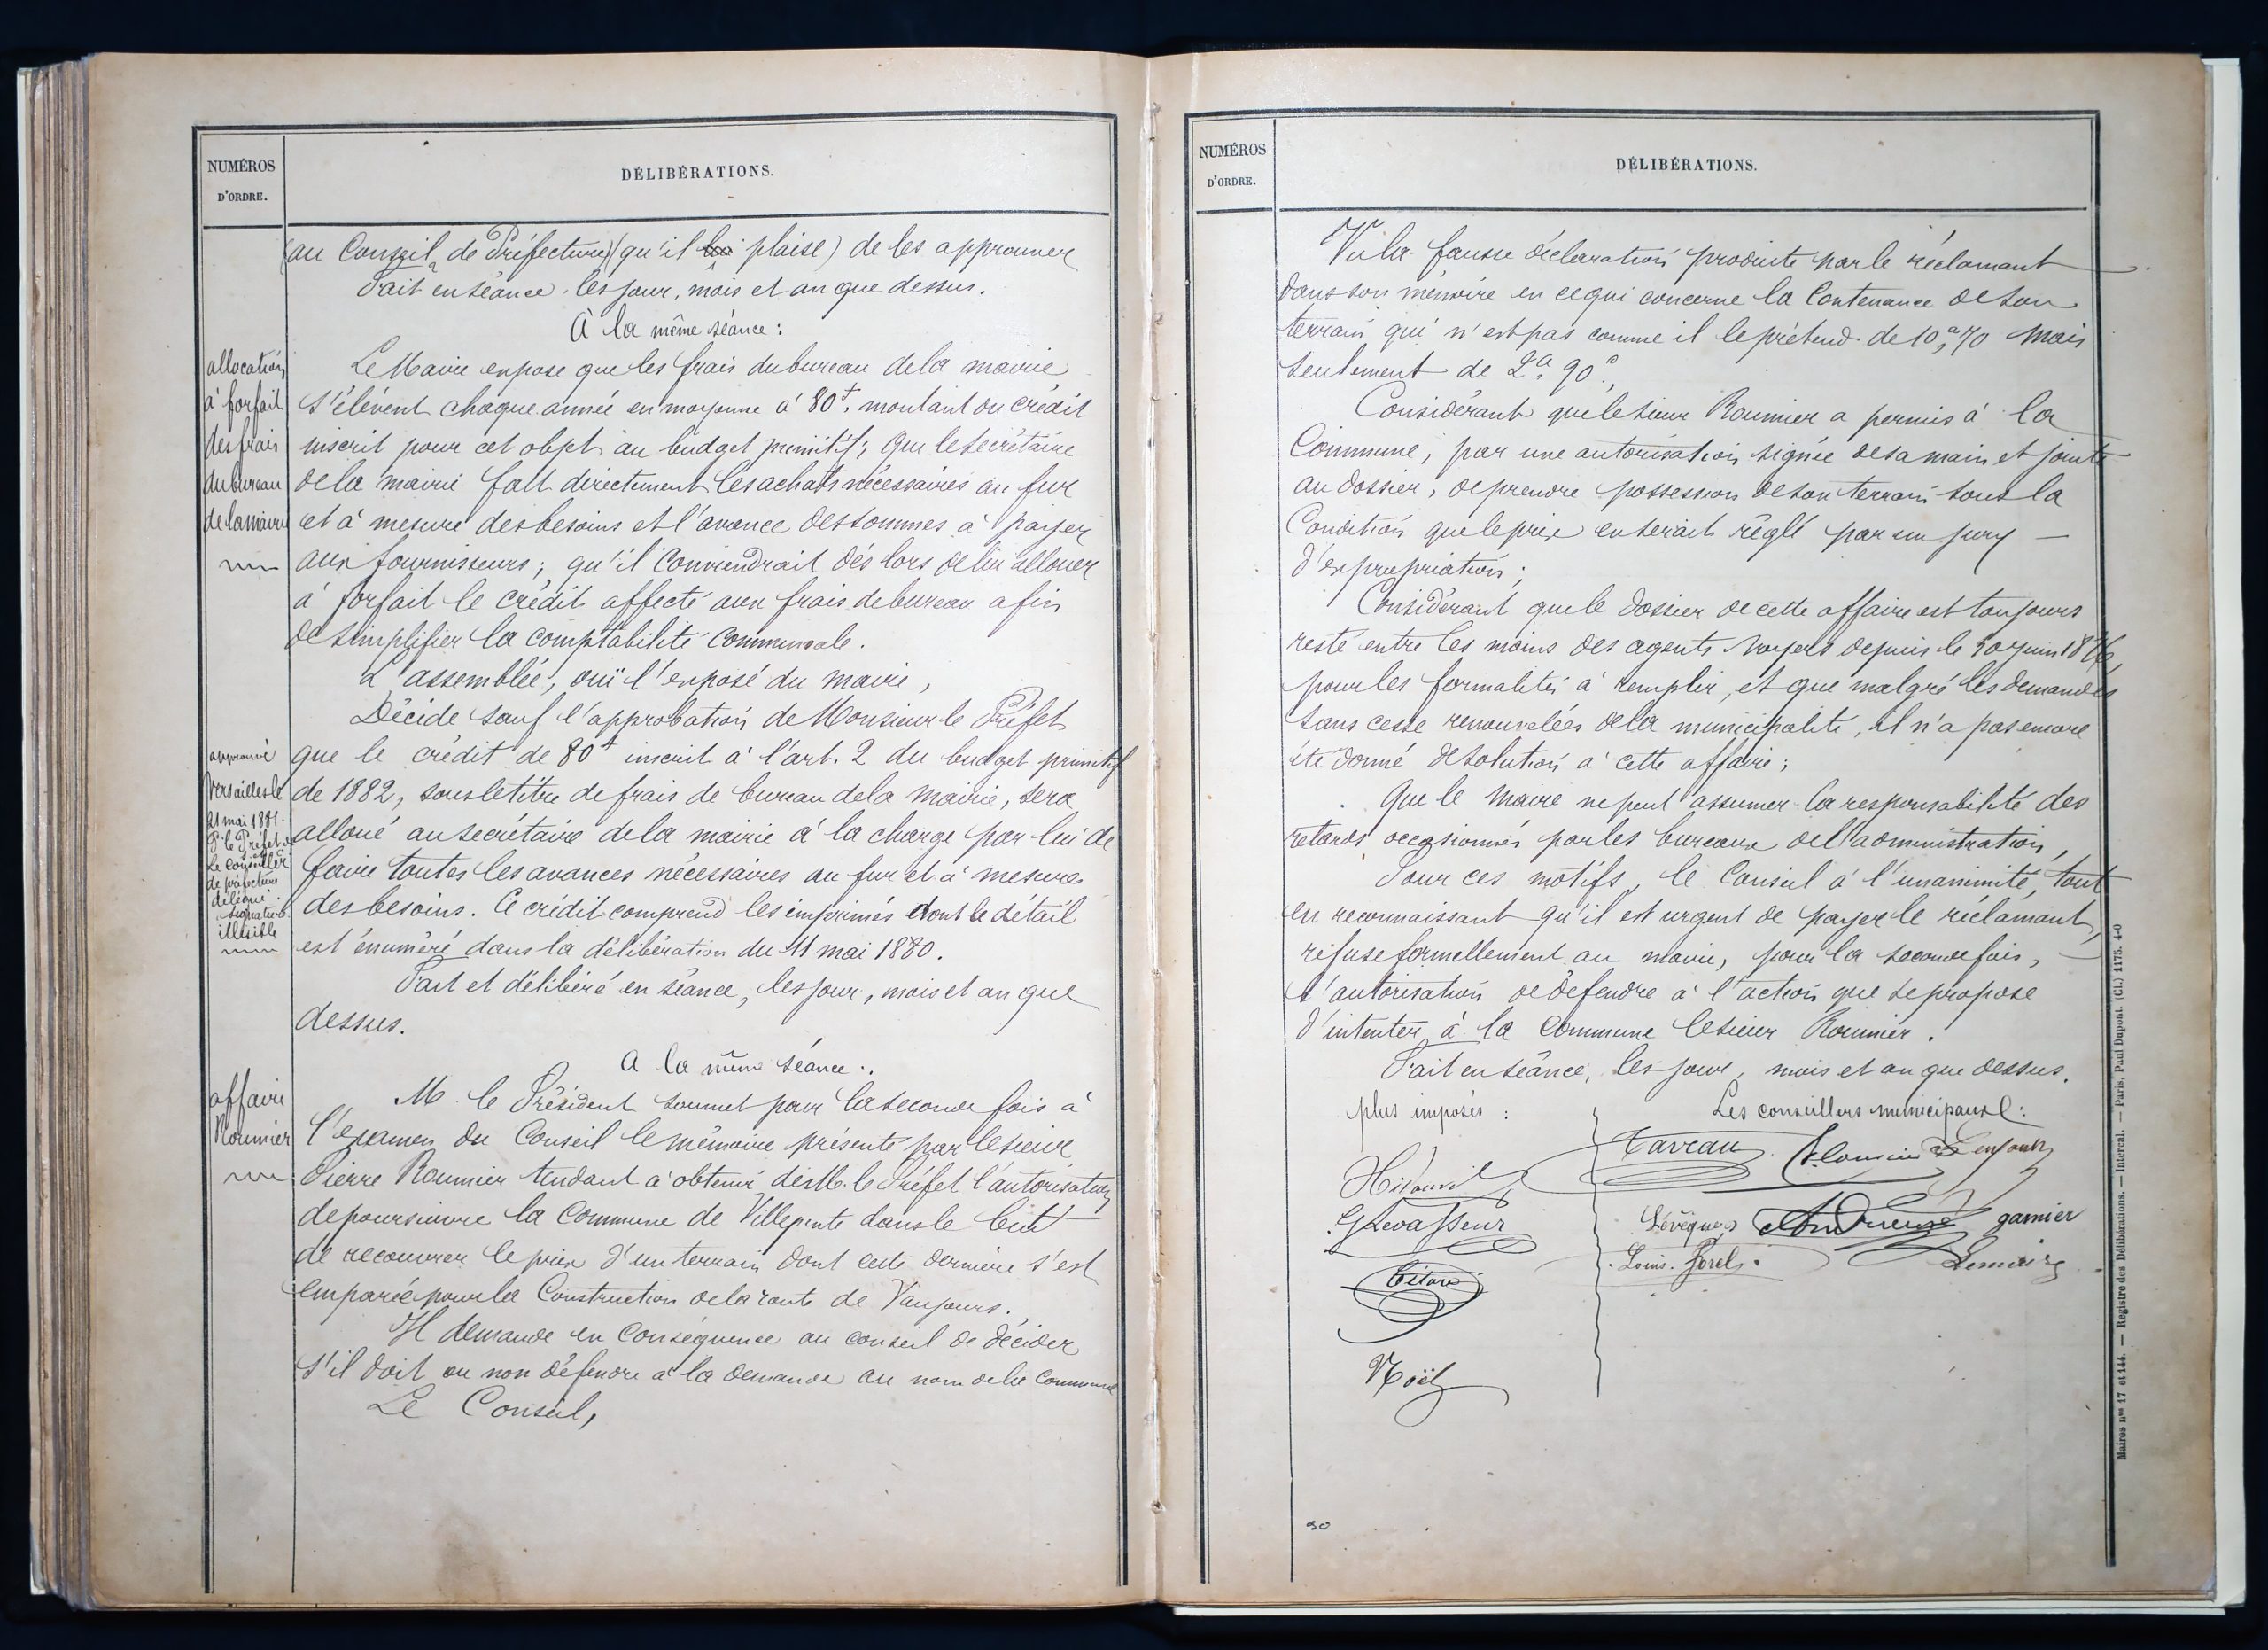 NUMÉROS
D'ORDRE.
DÉLIBÉRATIONS.
(au Conseil de Préfecture)(qu'il lui plaise) de les approuver
Fait en séance les jour, mois et an que dessus.
À la même séance :
allocation
à forfait
des frais
du bureau
de la mairie
Le Maire expose que les frais du bureau de la mairie
s'élèvent chaque année en moyenne à 80f. montant du crédit
inscrit pour cet objet au budget primitif; que le secrétaire
de la mairie fait directement les achats nécessaires au fur
et à mesure des besoins et l'avance des sommes à payer
aux fournisseurs ; qu'il conviendrait dès lors de lui allouer
à forfait le crédit affecté aux frais de bureau afin
de simplifier la comptabilité communale.
L'assemblée, ouï l'exposé du maire,
Décide sauf l'approbation de Monsieur le Préfet
que le crédit de 80f inscrit à l'art. 2 du budget primitif
de 1882, sous le titre de frais de bureau de la mairie, sera
alloué au secrétaire de la mairie à la charge par lui de
faire toutes les avances nécessaires au fur et à mesure
des besoins. Ce crédit comprend les imprimés dont le détail
est énuméré dans la délibération du 11 mai 1880.
approuvé
Versailles le
21 mai 1881.
P. le Préfet
Le conseiller
de préfecture
délégué
signature
illisible
Fait et délibéré en séance, les jour, mois et an que
dessus.
A la même séance :
affaire
Roumier
M. le Président soumet pour la seconde fois à
l'examen du Conseil le mémoire présenté par le sieur
Pierre Roumier tendant à obtenir de M. le Préfet l'autorisation
de poursuivre la Commune de Villepinte dans le but
de recouvrer le prix d'un terrain dont cette dernière s'est
emparée pour la Construction de la route de Vaujours.
Il demande en conséquence au conseil de décider
s'il doit ou non défendre à la demande au nom de la Commune
Le Conseil,
NUMÉROS
D'ORDRE.
DÉLIBÉRATIONS.
Vu la fausse déclaration produite par le réclamant
dans son mémoire en ce qui concerne la Contenance de son
terrain qui n'est pas comme il le prétend de 10a,70 mais
seulement de 2a 90c,
Considérant que le sieur Roumier a permis à la
Commune, par une autorisation signée de sa main et jointe
au dossier, de prendre possession de son terrain sous la
Condition que le prix en serait réglé par un jury —
d'expropriation ;
Considérant que le dossier de cette affaire est toujours
resté entre les mains des agents voyers depuis le juin
pour les formalités à remplir, et que malgré les demandes
sans cesse renouvelées de la municipalité, il n'a pas encore
été donné de solution à cette affaire ;
Que le Maire ne peut assumer la responsabilité des
retards occasionnés par les bureaux de l'administration,
Pour ces motifs, le Conseil à l'unanimité, tout
en reconnaissant qu'il est urgent de payer le réclamant,
refuse formellement au maire, pour la seconde fois,
l'autorisation de défendre à l'action que se propose
d'intenter à la Commune le sieur Roumier.
Fait en séance, les jour, mois et an que dessus.
plus imposés :
Les conseillers municipaux :
Taveau
GLevasseur
Lévêque garnier
Louis. Lemaire
Noël
50
Maires nos 17 et 144. — Registre des Délibérations. — Intercal. — Paris, Paul Dupont. (Cl.) 1175. 4-0